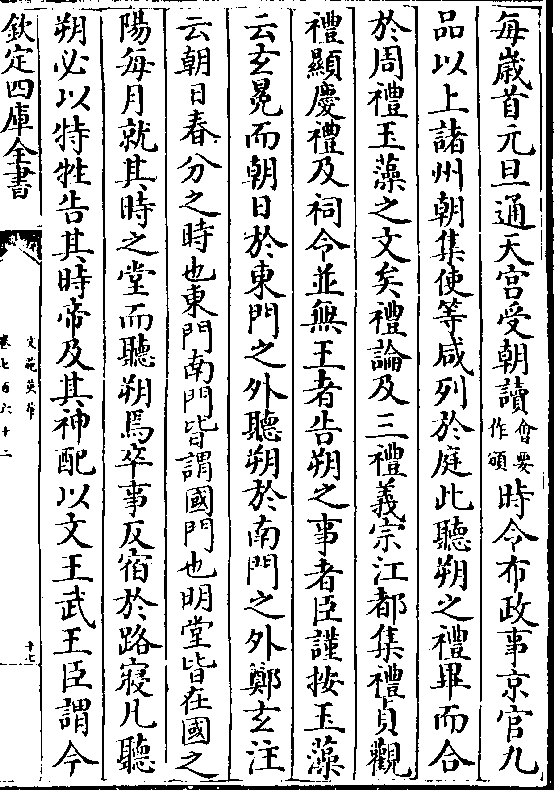 每歲首元旦通天宫受朝讀會要作頒時令布政事京官九
品以上諸州朝集使等咸列於庭此聽朔之禮畢而合
於周禮玉藻之文矣禮論及三禮義宗江都集禮貞觀
禮顯慶禮及祠令並無王者告朔之事者臣謹按玉藻
云玄冕而朝日於東門之外聽朔於南門之外鄭玄注
云朝日春分之時也東門南門皆謂國門也明堂皆在國之
陽每月就其時之堂而聽朔焉卒事反宿於路寢凡聽
朔必以特牲告其時帝及其神配以文王武王臣謂今
欽定四庫全書
文苑英華
卷七百六十二
十七